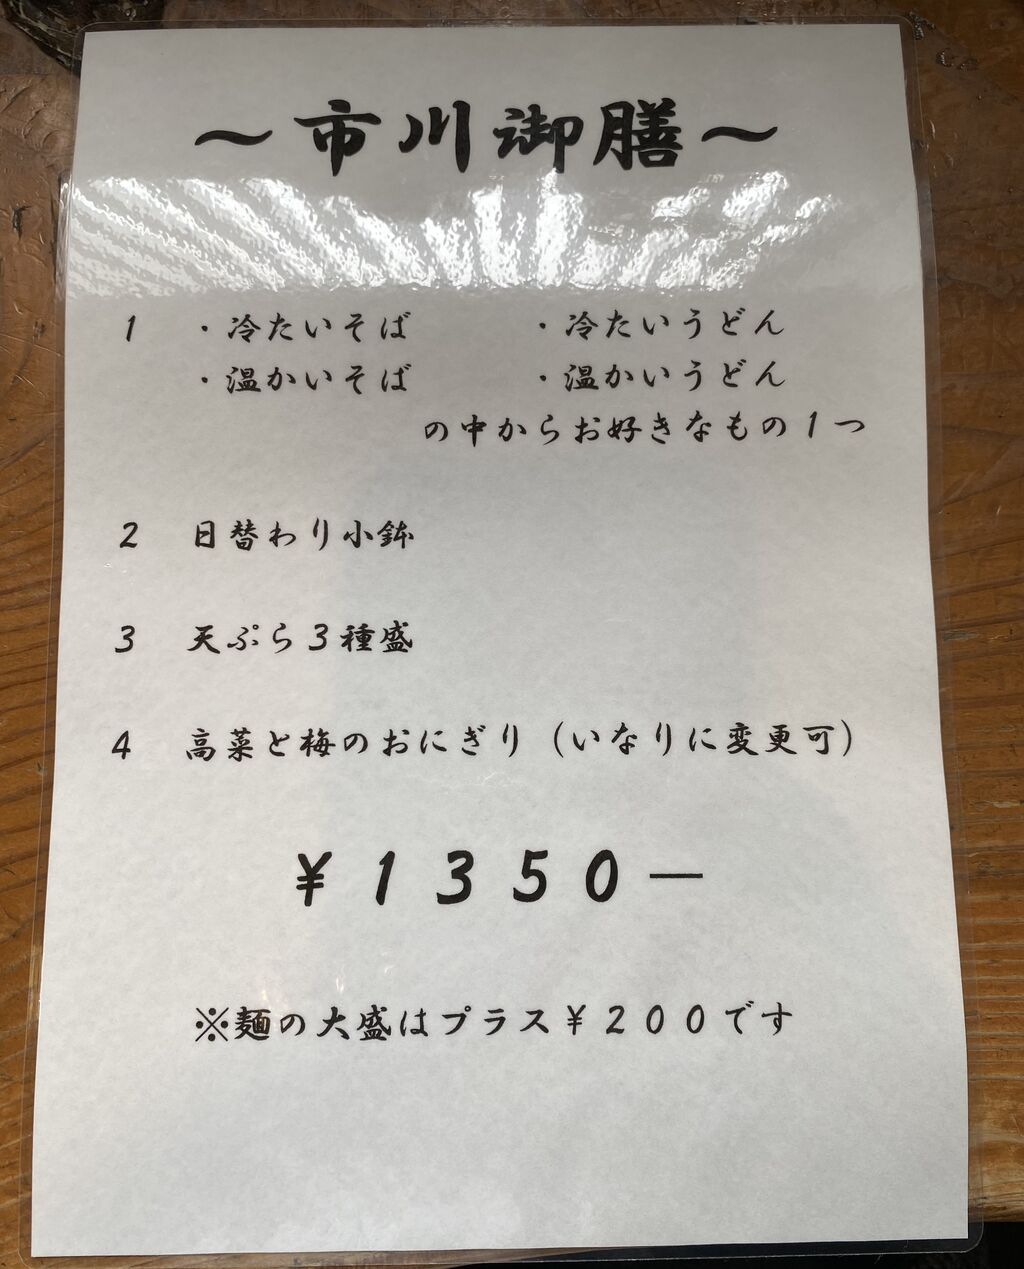 ～市川御膳～
1 ・冷たいそば ・冷たいうどん
・温かいそば ・温かいうどん
の中からお好きなもの１つ
2 日替わり小鉢
3 天ぷら３種盛
4 高菜と梅のおにぎり（いなりに変更可）
￥１３５０―
※麺の大盛はプラス￥２００です